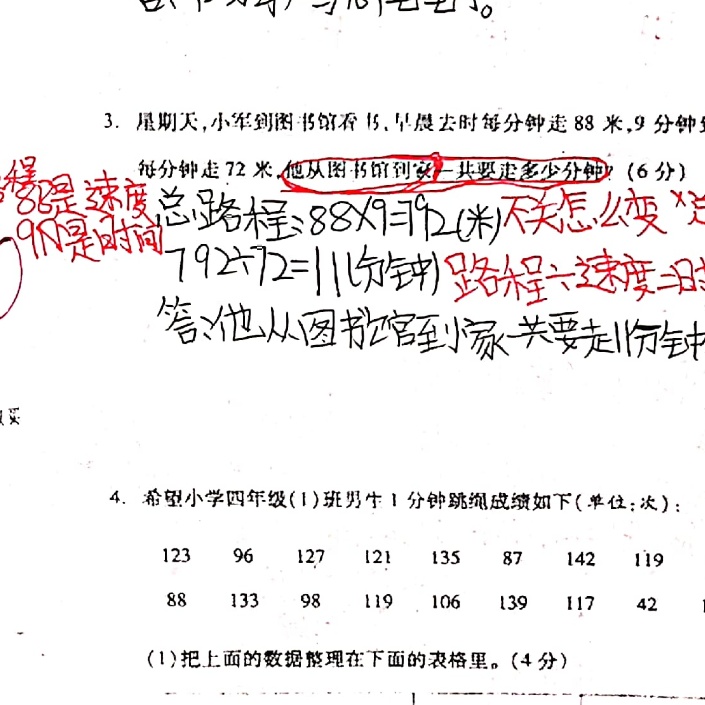 3. 星期天,小军到图书馆看书,早晨去时每分钟走88米,9分钟
每分钟走72米,他从图书馆到家一共要走多少分钟?(6分)
88是速度
9时是时间
总路程:88×9=792(米) 不关怎么变
792÷72=11(分钟) 路程÷速度=时
答:他从图书馆到家一共要走11分钟
4. 希望小学四年级(1)班男生1分钟跳绳成绩如下(单位:次):
123 96 127 121 135 87 142 119
88 133 98 119 106 139 117 42
(1)把上面的数据整理在下面的表格里。(4分)